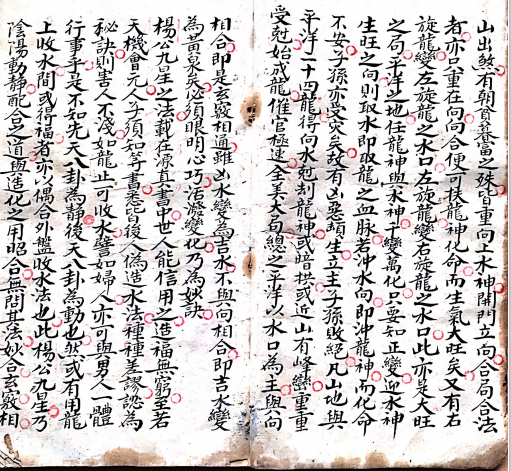 山出煞有朝貧暮富之殊皆重向上水神開門立向合局合法
者亦只重在向向合便可扶龍神化命而生氣大旺矣又有右
旋龍變左旋龍之水口左旋龍變右旋龍之水口此亦是大旺
之局平洋之地任龍神與水神千變萬化只要知正變迎水神
生旺之向則取水即取龍之血脉若沖水向即沖龍神而化命
不安子孫亦受灾矣故有凶惡頻生立主子孫敗絕凡山地與
平洋二十四龍得向水尅刦龍神或暗拱或近山有峰巒重重
受尅始成龍催官極速全美大局總之平洋以水口為主與向
相合即是玄竅相通雖凶水變為吉水不與向相合即吉水變
為黃泉矣必須眼明心巧活潑變化乃為妙訣
楊公九星之法載在源真書中世人能信用之造福無窮至若
天機會元人子須知等書悉皆後人偽造水法種種差謬認為
秘訣則害人不淺如龍止可收水譬如婦人亦可與男人一體
行事乎是不知先天八卦為靜後天八卦為動也然或有用龍
上收水間或得福者亦以偶合外盤收水法也此楊公九星乃
陰陽動靜配合之道與造化之用昭合無間其法妙合玄竅相